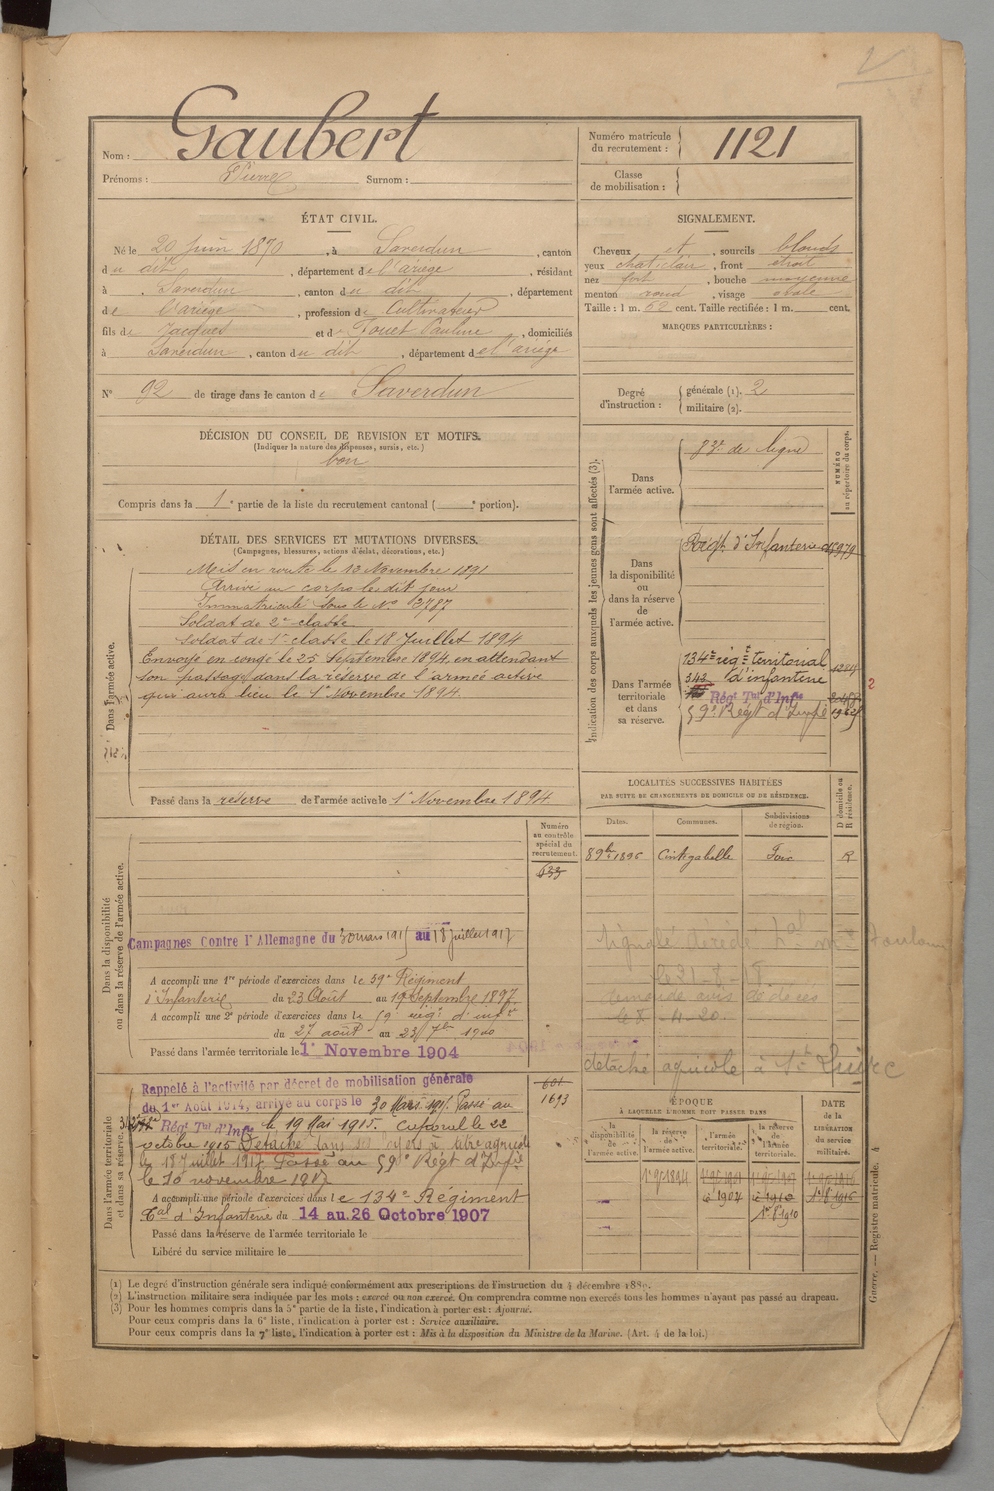 2
Nom : Gaubert
Prénoms : Pierre Surnom :
Numéro matricule du recrutement : 1121
Classe de mobilisation :
ÉTAT CIVIL.
Né le 20 Juin 1870, à Saverdun, canton
du dit, département de l'ariège, résidant
à Saverdun, canton du dit, département
de l'ariège, profession de Cultivateur
fils de Jacques et de Fouet Pauline, domiciliés
à Saverdun, canton du dit, département de l'ariège
N° 92 de tirage dans le canton de Saverdun
SIGNALEMENT.
Cheveux et, sourcils blonds
yeux chat. clair, front étroit
nez fort, bouche moyenne
menton rond, visage ovale
Taille : 1 m. 62 cent. Taille rectifiée : 1 m. cent.
MARQUES PARTICULIÈRES :
Degré d'instruction : générale (1). 2
militaire (2).
DÉCISION DU CONSEIL DE REVISION ET MOTIFS.
(Indiquer la nature des dispenses, sursis, etc.)
bon
Compris dans la 1e partie de la liste du recrutement cantonal ( e portion).
DÉTAIL DES SERVICES ET MUTATIONS DIVERSES.
(Campagnes, blessures, actions d'éclat, décorations, etc.)
Dans l'armée active.
Mis en route le 13 Novembre 1891
Arrivé au corps le dit jour
Immatriculé sous le No 3787
Soldat de 2e classe
Soldat de 1e classe le 18 Juillet 1894
Envoyé en congé le 25 Septembre 1894, en attendant
son passage dans la réserve de l'armée active
qui aura lieu le 1er novembre 1894.
Passé dans la réserve de l'armée active le 1er Novembre 1894
Indication des corps auxquels les jeunes gens sont affectés (3).
NUMÉRO au répertoire du corps.
Dans l'armée active.
83e de ligne
Dans la disponibilité ou dans la réserve de l'armée active.
Régt d'Infanterie
Dans l'armée territoriale et dans sa réserve.
134e régt territorial
d'infanterie
Régt Tal d'Infie
59e Régt d'Infie
2
LOCALITÉS SUCCESSIVES HABITÉES
PAR SUITE DE CHANGEMENTS DE DOMICILE OU DE RÉSIDENCE.
Dates. Communes. Subdivisions de région. D domicile ou R résidence.
8 9bre 1896 Cintegabelle Foix R
demande avis de décès
le 8-4-20.
détaché agricole à St Quirc
Dans la disponibilité ou dans la réserve de l'armée active.
Numéro au contrôle spécial du recrutement.
633
Campagnes Contre l'Allemagne du 30 mars 1915 au 18 juillet 1917
A accompli une 1re période d'exercices dans le 59e Régiment
d'Infanterie du 23 Août au 19 Septembre 1897
A accompli une 2e période d'exercices dans le 59 régt d'infie
du 27 août au 23 7bre 1900
Passé dans l'armée territoriale le 1er Novembre 1904
Dans l'armée territoriale et dans sa réserve.
601
1693
Rappelé à l'activité par décret de mobilisation générale
du 1er Août 1914, arrivé au corps le 30 Mars 1915. Passé au
Régt Tal d'Infie le 19 Mai 1915. Caporal le 22
octobre 1915 Détaché dans ses foyers à titre agricole
le 18 juillet 1917 Passé au 59e Régt d'Infie
le 10 novembre 1917
A accompli une période d'exercices dans le 134e Régiment
Tal d'Infanterie du 14 au 26 Octobre 1907
Passé dans la réserve de l'armée territoriale le
Libéré du service militaire le
ÉPOQUE
À LAQUELLE L'HOMME DOIT PASSER DANS
la disponibilité de l'armée active.
la réserve de l'armée active.
l'armée territoriale.
la réserve de l'armée territoriale.
DATE de la LIBÉRATION du service militaire.
(1) Le degré d'instruction générale sera indiqué conformément aux prescriptions de l'instruction du 4 décembre 1889.
(2) L'instruction militaire sera indiquée par les mots : exercé ou non exercé. On comprendra comme non exercés tous les hommes n'ayant pas passé au drapeau.
(3) Pour les hommes compris dans la 5e partie de la liste, l'indication à porter est : Ajourné.
Pour ceux compris dans la 6e liste, l'indication à porter est : Service auxiliaire.
Pour ceux compris dans la 7e liste, l'indication à porter est : Mis à la disposition du Ministre de la Marine. (Art. 4 de la loi.)
Guerre. — Registre matricule. 4